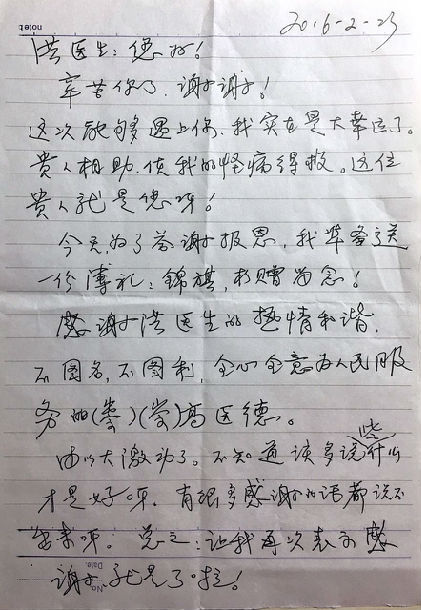 2016-2-23
洪医生：您好！
辛苦你了，谢谢！
这次能够遇上你，我实在是大幸运了。
贵人相助，使我的怪病得救。这位
贵人就是您呀！
今天，为了答谢报恩，我准备送
一份薄礼：锦旗，权赠为念！
感谢洪医生的热情和谐，
不图名，不图利，全心全意为人民服
务的(崇)(尚)高医德。
由以大激动了。不知道该多说些什么
才是好呀。有很多感谢的话都说不
出来呀。总之：让我再次表示感
谢，就是了
No.
Date.